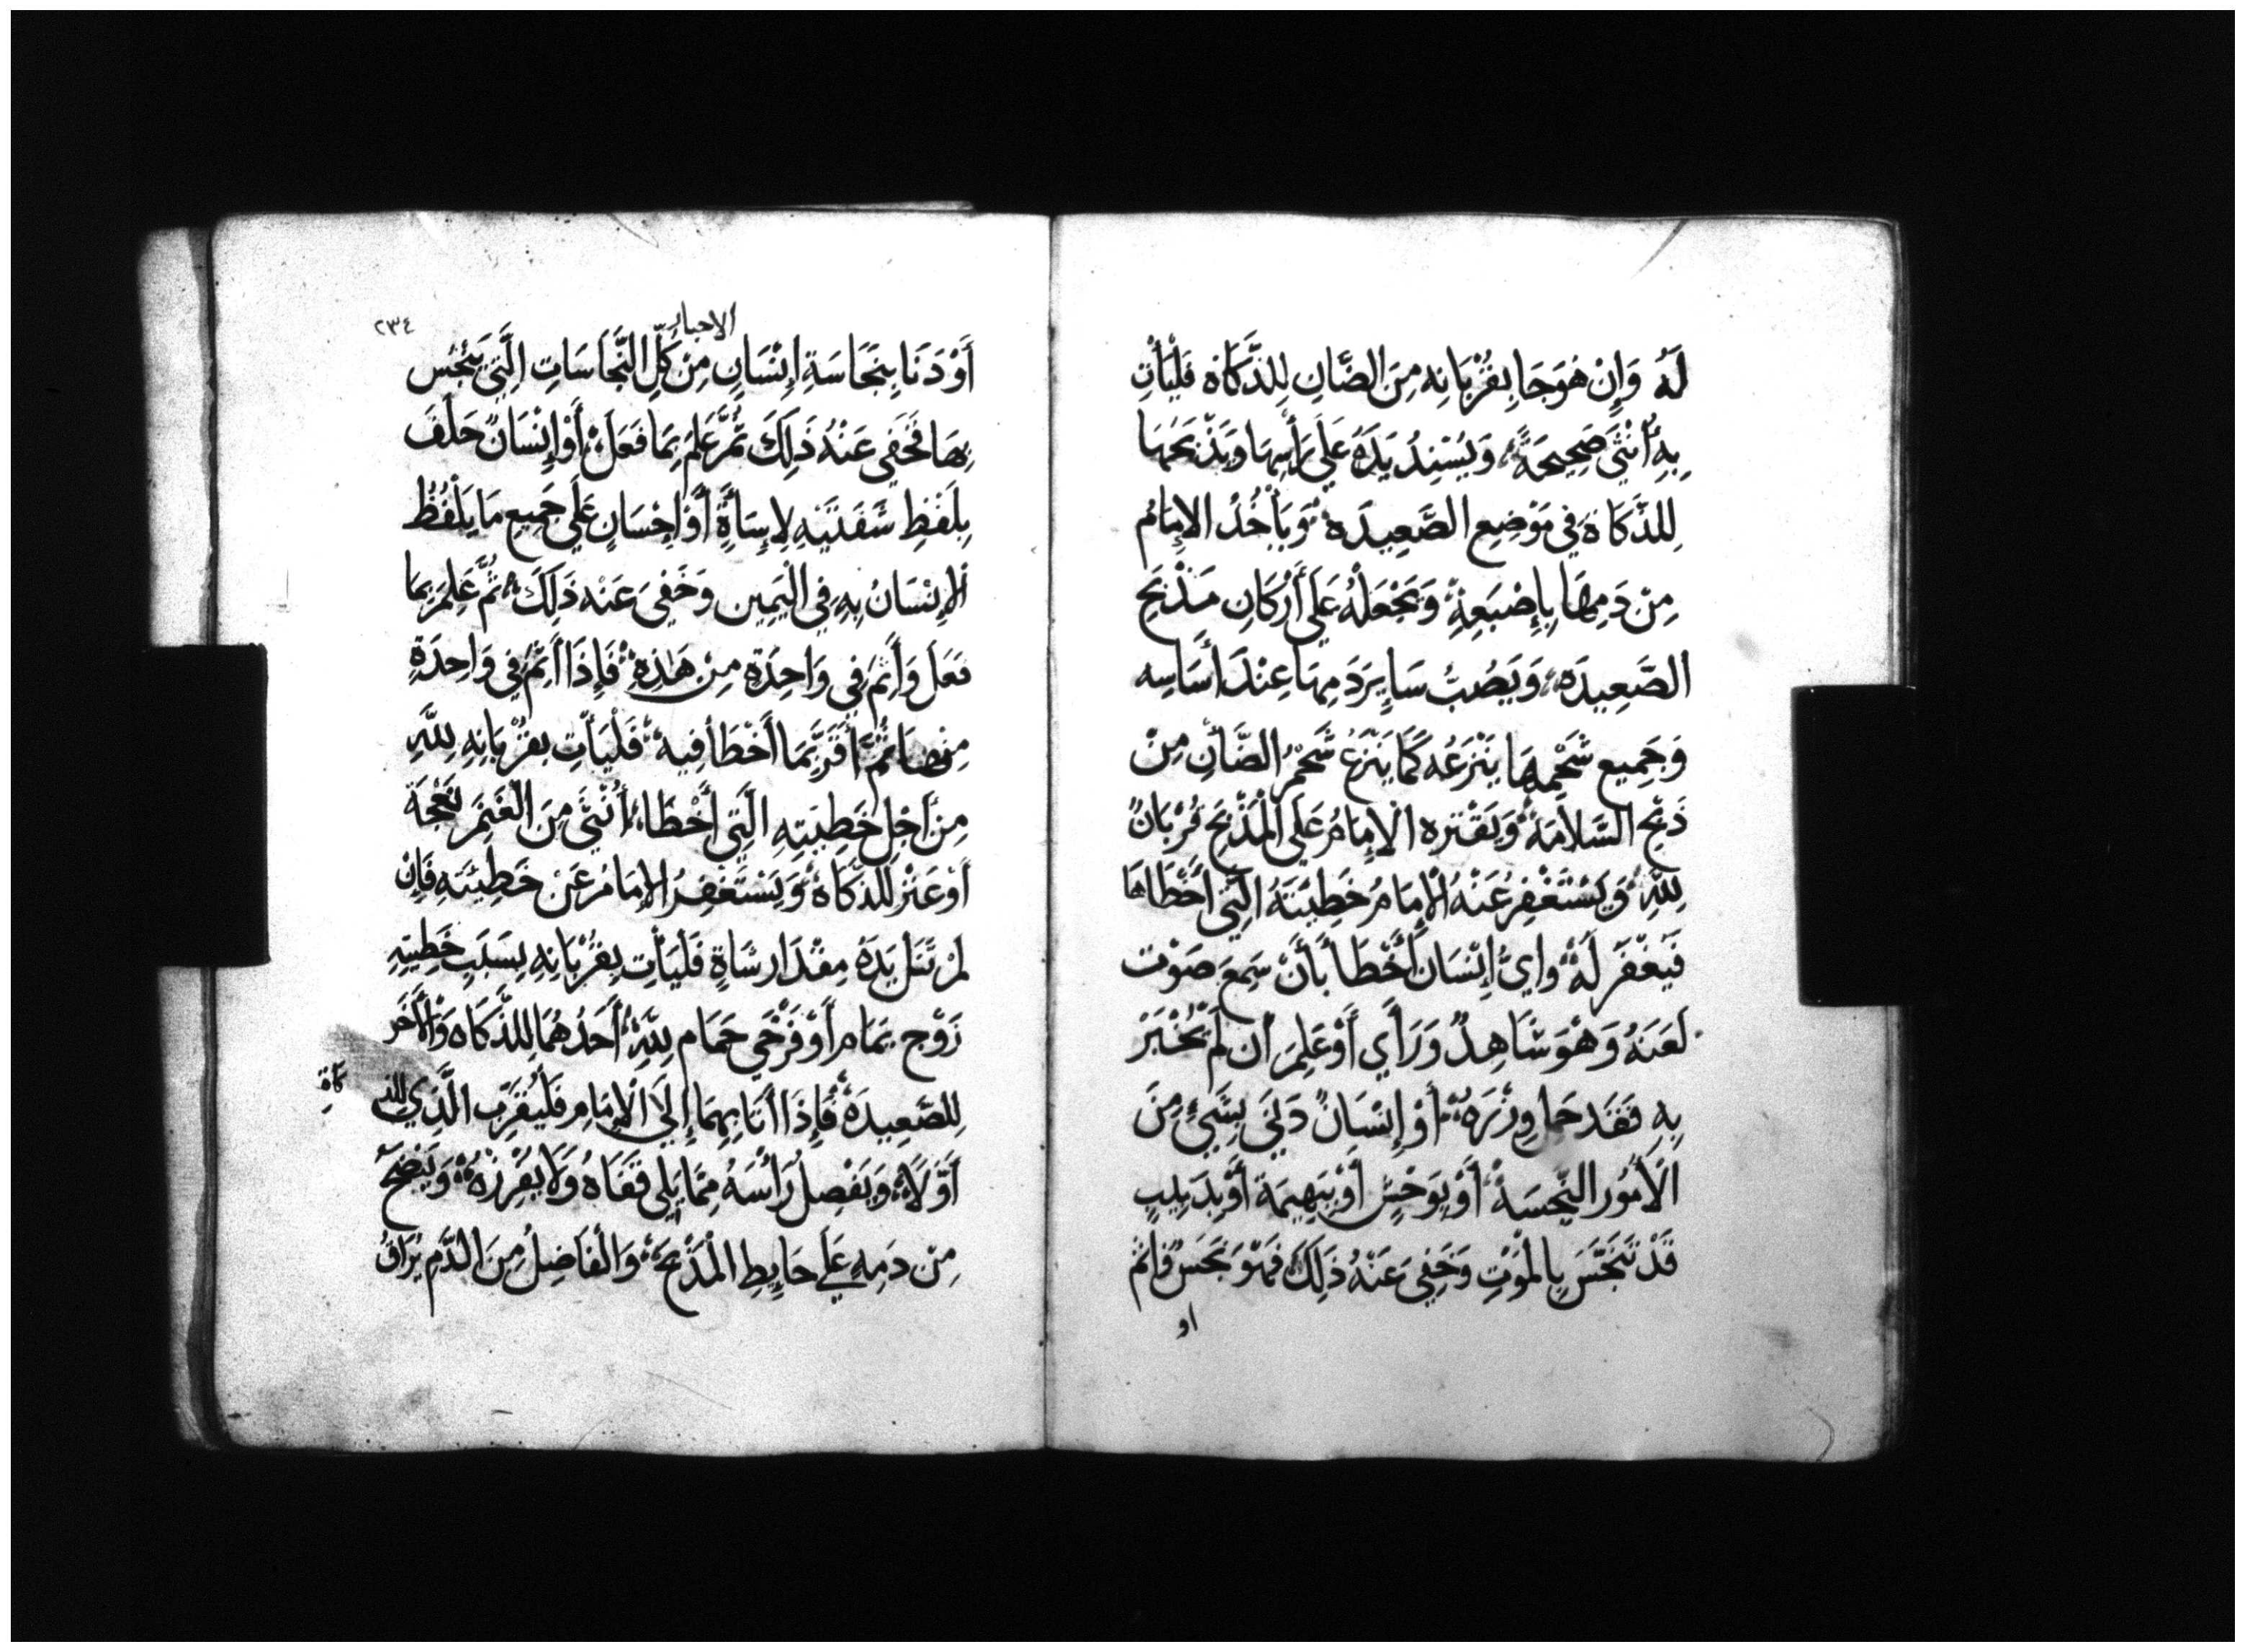 لَهُ وَإِنْ هُوَ جَا بِقُرْبَانِه مِنَ الضَّانِ لِلذَّكَاة فَلْيَأْتِ
بِهِ أُنْثَى صَحِيحَةً، وَيُسْنِدُ يَدَهُ عَلَى رَأْسِهَا وَيَذْبَحُهَا
لِلذَّكَاة فِي مَوْضِعِ الصَّعِيدَه وَيَأْخُذُ الإِمَامُ
مِنْ دَمِهَا بِإِصْبَعِهِ وَيَجْعَلُهُ عَلَى أَرْكَانِ مَذْبَحِ
الصَّعِيدَه، وَيَصُبُّ سَايِرَ دَمِهَا عِنْدَ أَسَاسِه
وَجَمِيع شَحْمِهَا يَنْزَعُه كَمَا يَنْزَعُ شَحْمُ الضَّأْنِ مِنْ
ذَبْحِ السَّلاَمَة وَيَقْتره الْإِمَامُ عَلَى الْمَذْبَحِ قُرْبَانٌ
لِلَّهِ وَيَسْتَغْفِرُ عَنْهُ الْإِمَامُ خَطِيَتَهُ الَّتِي أَخْطَاهَا
فَيَغْفَرُ لَهُ وايُّ إِنْسَان أَخْطَأ بَأَنْ سَمِعَ صَوْت
لَعَنَهُ وَهْوَ شَاهِدٌ وَرَأَي أَوْ عَلِمَ ان لَمْ يُخْبَرْ
بِهِ فَقَد حَمل وِزْرَهُ أَوْ إِنْسَانٌ دَنَى بِشَيْءٍ مِنَ
الْأُمُور النَّجِسَةْ أَوْ بِوَحْشٍ أَوْ بِبَهِيمَة أَوْ بِدَبِيبٍ
قَدْ تَنَجَّسَ بِالْمَوْتِ وَخَفِيَ عَنْهُ ذَلِكَ فَهْوَ نَجَسٌ فَاثم
او
الاحبار
٢٣٤
أَوْ دَنَا بِنَجَاسَةِ إِنْسَانٍ مِنْ كَلِّ النَّجَاسَاتِ الَّتِي يَنْجُس
بِهَا فَخَفِي عَنْهُ ذَلِكَ ثُمَّ عَلِمَ بِمَا فَعَلَ، أَوْ إِنْسَانٌ حَلَفَ
بِلَفْظِ شَفَتَيْهِ لِإِسَأَةٍ أَوْ إِحْسَانٍ عَلَى جَمِيعِ مَا يَلْفُظُ
الإِنْسَانُ بِهِ فِي الْيَمِين وَخَفِيَ عَنْه ذَلِكَ ثُمَّ عَلِمَ بِمَا
فَعَلَ وَأَثِمَ فِي وَاحِدَةٍ مِنْ هَذِهِ فَإِذَا أَثِمَ فِي وَاحِدَةٍ
مِنْهَا ثُمَّ أَقَرَّ بِمَا أَخْطَأ فِيه فَلْيَأْتِ بِقُرْبَانِهِ لِلَّهِ
مِن اَجْلِ خَطِيَتِهِ الَّتِي أَخْطَا، أُنْثَى مِنَ الْغَنَمِ نَعْجَة
أَوْ عَنْز لِلذَّكَاة وَيَسْتَغْفِرُ الإِمَامُ عَنْ خَطِيئَتِه فَإِنْ
لَمْ تَنَل يَدَهُ مِقْدَار شَاةٍ فَلْيَأْتِ بِقُرْبَانِهِ بِسَبَبِ خَطِيتِهِ
زَوْج يَمَام أَوْ فَرْخَيِ حَمَام لِلَّهِ أَحَدُهُمَا لِلذَّكَاه وَالْأَخَر
لِلصَّعِيدَة فَإِذَا أَتَا بِهِمَا إِلَى الْإِمَامِ فَلْيُقَرِّب الَّذِي للذ
كاة
أَوَّلاً، وَيَفْصِلُ رَأْسَهُ مِمَّا يَلِي قَفَاهُ وَلَا يفْرِزهُ وَيَنْضَحُ
مِنْ دَمِهِ عَلَى حَايِطِ الْمَذْبَحِ، وَالْفَاضِلُ مِنَ الدَّمِ يُرَاقُ